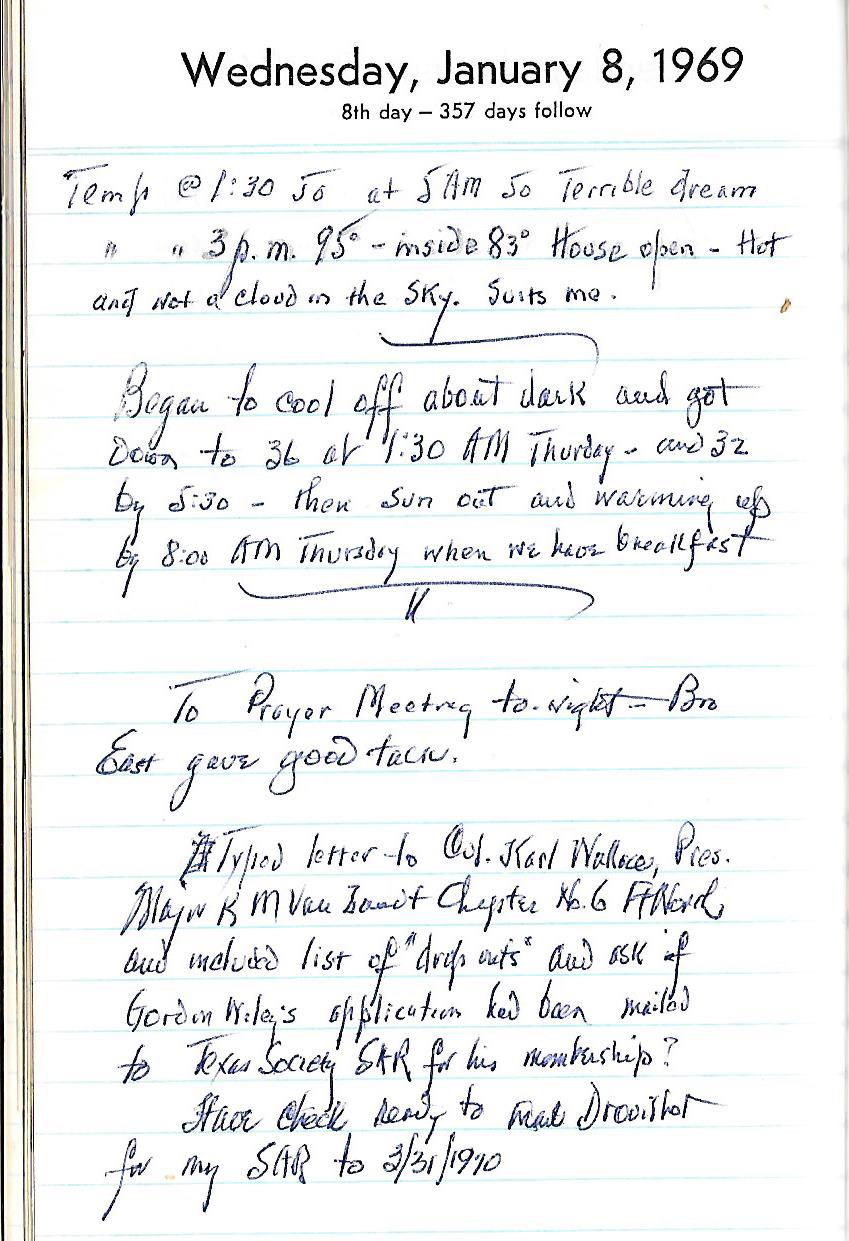 Wednesday, January 8, 1969
8th day – 357 days follow
Temp @ 1:30 50 at 5 AM 50 Terrible dream
" " 3 p.m. 95° - inside 83° House open - Hot
and not a cloud in the sky. Suits me.
Began to cool off about dark and got
Down to 36 at 1:30 AM Thurday - and 32
by 5:30 - then sun out and warming up
by 8:00 AM Thursday when we have breakfast
To Prayer Meeting to-night - Bro
East gave good talk.
Typed letter to Col. Karl Wallace, Pres.
Major K M Van Zandt Chapter No. 6 Ft Worth,
and included list of "drop outs" and ask if
Gordon Wiley's application had been mailed
to Texas Society SAR for his membership?
Have check ready to mail
for my SAR to 3/31/1970